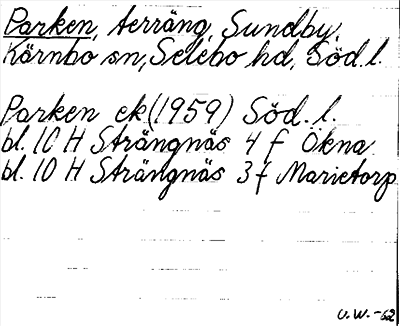 Parken, terräng, Sundby,
Kärnbo sn, Selebo hd, Söd. l.
Parken ek (1959) Söd. l.
bl. 10 H Strängnäs 4 f Ökna
bl. 10 H Strängnäs 3 f Marietorp
U.W. -62